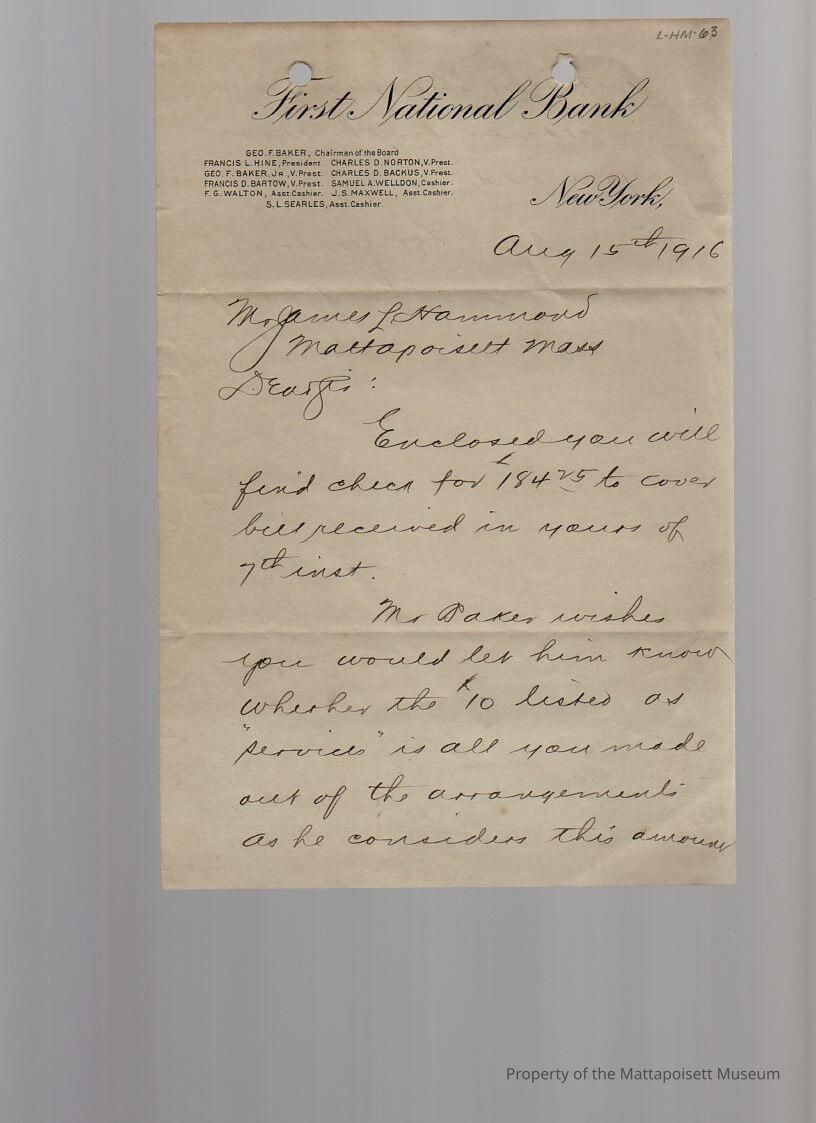 L-HM-63
First National Bank
GEO. F. BAKER, Chairman of the Board
FRANCIS L. HINE, President. CHARLES D. NORTON, V. Prest.
GEO. F. BAKER, Jr., V. Prest. CHARLES D. BACKUS, V. Prest.
FRANCIS D. BARTOW, V. Prest. SAMUEL A. WELLDON, Cashier.
F. G. WALTON, Asst. Cashier. J. S. MAXWELL, Asst. Cashier.
S. L. SEARLES, Asst. Cashier.
New York,
Aug 15th 1916
Mr James L Hammond
Mattapoisett Mass
Dear Sir:
Enclosed you will
find check for $184 25 to cover
bill received in yours of
7th inst.
Mr Baker wishes
you would let him know
whether the $10 listed as
"services" is all you made
out of the arrangements
as he considers this amount
Property of the Mattapoisett Museum